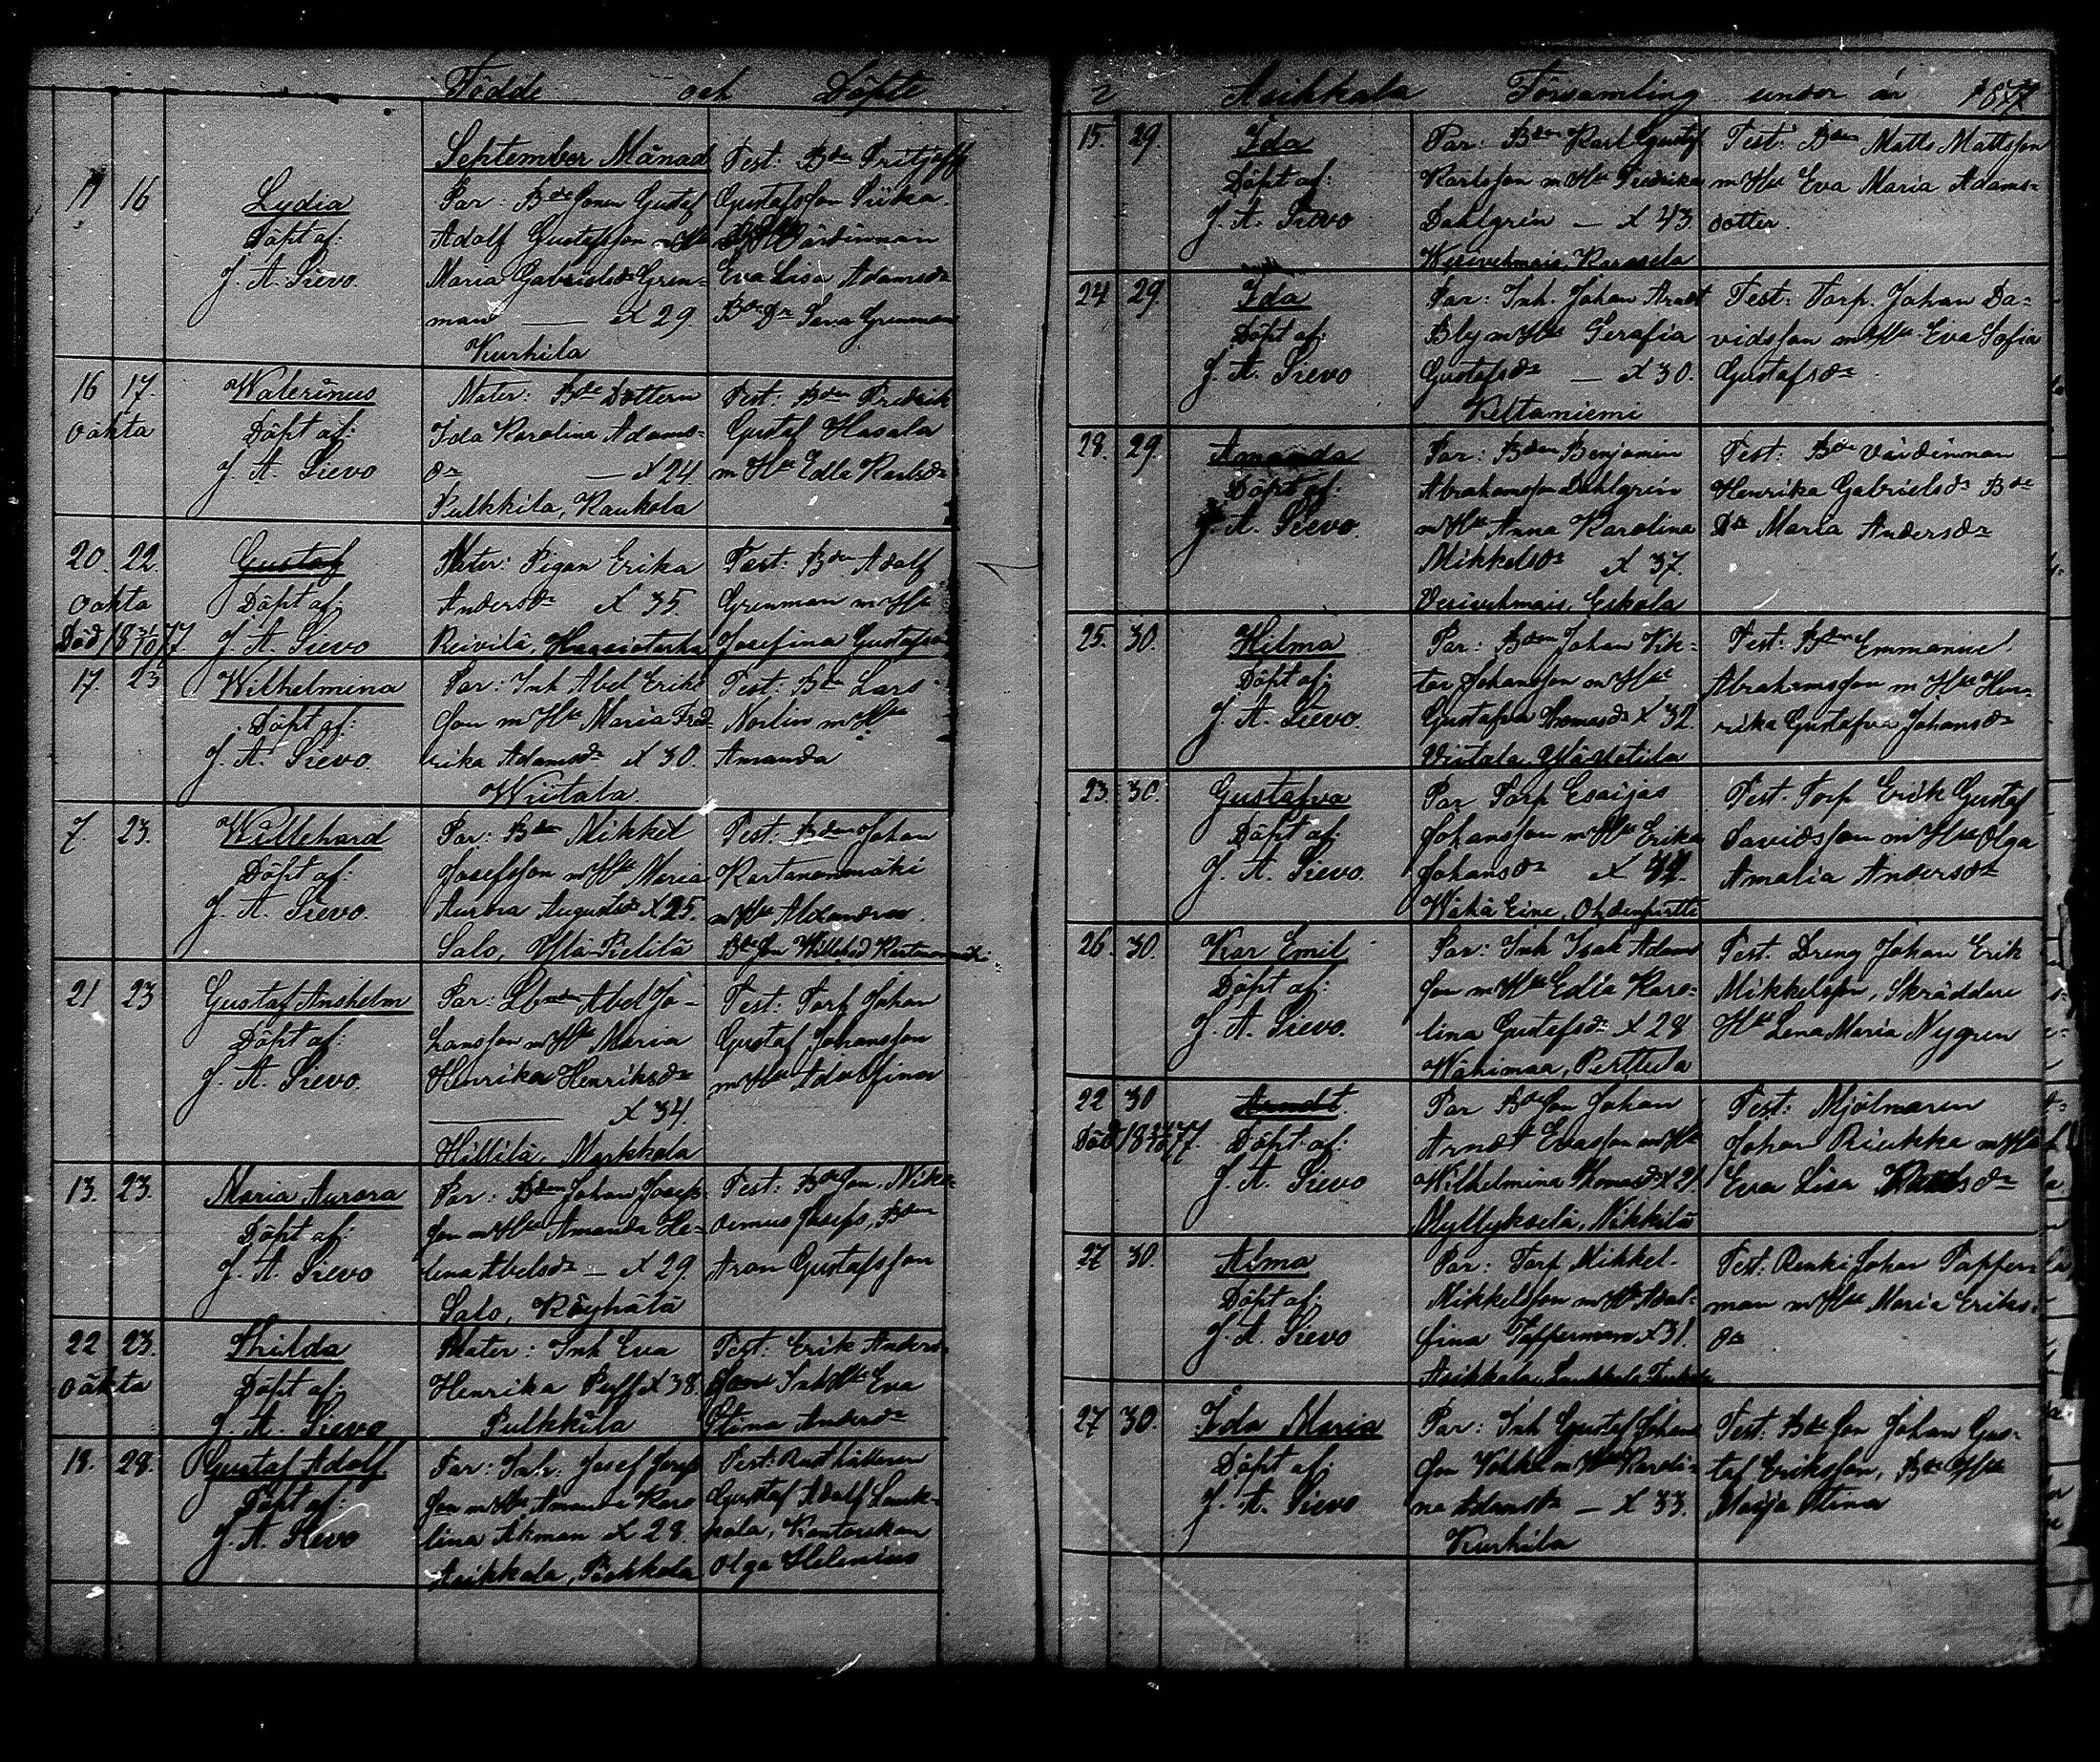 Födde och Döpte
September Månad
16
Lydia
Döpt af:
J. A. Sievo.
Par: Bde sonen Gustaf
Adolf Gustafsson m Hu
Maria Gabrielsdr Gren-
man — x 29.
Kurhila
Test: Bden Fritjoff
Gustafsson
Värdinnan
Eva Lisa Adamsdr
Bde Dr Grenman
16 17.
oäkta
Walerinus
Döpt af:
J. A. Sievo
Mater: Bde Dottern
Ida Karolina Adams-
dr — x 24.
Pulkkila, Kaukola
Test: Bden Fredrik
Gustaf Hasala
m Hu Edla Karlsdr
20. 22.
oäkta
Död 18 77.
Gustaf
Döpt af:
J. A. Sievo
Mater: Pigan Erika
Andersdr x 35.
Reivilä,
Test: Bden Adolf
Grenman m Hu
Josefina Gustafsdr
17. 23
Wilhelmina
Döpt af:
J. A. Sievo.
Par: Inh Abel Eriks
son m Hu Maria Fred-
rika Adamsdr x 30.
Wiitala.
Test: Bde Lars
Norlin m Hu
Amanda
7. 23.
Willehard
Döpt af:
J. A. Sievo.
Par: Bden Mikkel
Josefsson m Hu Maria
Aurora Augustsdr x 25.
Salo,
Test: Bden Johan
Kartanonmäki
m Hu Alexandra.
Bde son
21 23
Gustaf Anshelm
Döpt af:
J. A. Sievo.
Par: Abel Jo-
hansson m Hu Maria
Henrika Henriksdr
— x 34.
Hillilä, Markkola
Test: Torp Johan
Gustaf Johansson
m Hu Adolfina
13. 23.
Maria Aurora
Döpt af:
J. A. Sievo
Par: Bden Johan Josefs-
son m Hu Amanda He-
lena Abelsdr — x 29.
Salo, Röyhälä
Test: Bde son. Niko-
demus Josefs, Bden
Aron Gustafsson
22 23.
oäkta
Hilda
Döpt af:
J. A. Sievo
Mater: Inh Eva
Henrika x 38.
Pulkkila
Test: Erik Anders-
son Inh Hu Eva
Stina Andersdr
18. 28.
Gustaf Adolf.
Döpt af:
J. A. Sievo
Par: Inh: Josef Josefs
son m Hu Amanda Karo
lina Akman x 28.
Asikkala,
Test:
Gustaf Adolf Lauk-
kala,
Olga Helenius
i Asikkala Församling under år 1877
15. 29.
Ida
Döpt af:
J. A. Sievo
Par: Bden Karl Gustaf
Karlsson m Hu Fredrika
Dahlgrén — x 43.
Wesivehmais,
Test: Bden Matts Mattsson
m Hu Eva Maria Adams-
dotter.
24 29.
Ida
Döpt af:
J. A. Sievo
Par: Inh. Johan Arndt
Bly m Hu Serafia
Gustafsdr — x 30.
Keltaniemi
Test: Torp. Johan Da-
vidsson m Hu Eva Sofia
Gustafsdr
28. 29.
Amanda
Döpt af:
J. A. Sievo.
Par: Bden Benjamin
Abrahamsson Dahlgrén
m Hu Anna Karolina
Mikkelsdr x 37.
Vesivehmais, Eskola
Test: Bde värdinnan
Henrika Gabrielsdr Bde
Dr Maria Andersdr
25. 30.
Hilma
Döpt af:
J. A. Sievo.
Par: Bden Johan Vik-
tor Johansson m Hu
Gustafva Thomasdr x 32.
Viitala,
Test: Bden Emmanuel
Abrahamsson m Hu Hen-
rika Gustafva Johansdr
23. 30.
Gustafva
Döpt af:
J. A. Sievo.
Par Torp Esaijas
Johansson m Hu Erika
Johansdr x
Wähä Eine,
Test. Torp Erik Gustaf
Davidsson m Hu Olga
Amalia Andersdr
26. 30.
Kar Emil
Döpt af:
J. A. Sievo.
Par: Inh Isak Adams
son m Hu Edla Karo-
lina Gustafsdr x 28
Wähimaa, Perttula
Test. Dreng Johan Erik
Mikkelsson, Skräddare
Hu Lena Maria Nygren
22 30
Död 18 77.
Arndt.
Döpt af:
J. A. Sievo
Par Bde son Johan
Arndt Evasson m Hu
Wilhelmina Thomasdr x 21.
Myllykselä, Nikkilä
Test: Mjölnaren
Johan Riukka m Hu
Eva Lisa
27 30.
Alma
Döpt af:
J. A. Sievo
Par: Torp Mikkel
Mikkelsson m Hu Adol-
fina Tapperman x 31.
Asikkala,
Test: Renki Johan Tapper-
man m Hu Maria Eriks-
dr
27 30.
Ida Maria
Döpt af:
J. A. Sievo
Par: Inh Gustaf Johans
son m Hu Karoli-
na Adamsdr — x 33.
Kurhila
Test: Bde son Johan Gus-
taf Eriksson, Bde Hu
Maija Stina